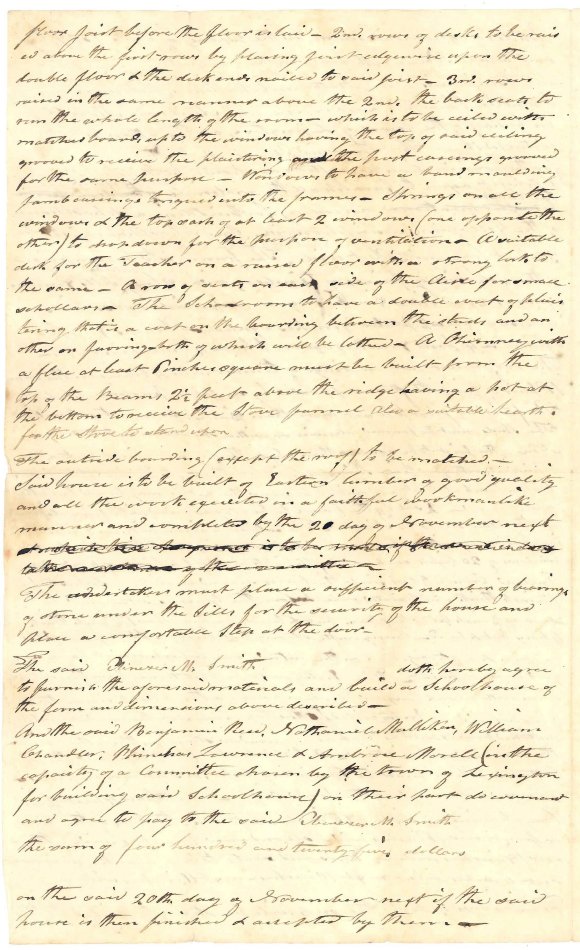 floor joist before the floor is laid – 2nd. rows of desks to be rais
ed above the first rows by placing joist edgewise upon the
double floor & the desk ends nailed to said joist – 3rd. rows
raised in the same manner above the 2nd. the back seats to
run the whole length of the room – which is to be ceiled with
matched boards up to the windows having the top of said ceiling
grooved to receive the plaistering and the post casings grooved
for the same purpose – Windows to have a band moulding
jamb casings tongued into the frames – Springs on all the
windows & the top sash of at least 2 windows (one opposite the
other) to drop down for the purpose of ventilation – A suitable
desk for the Teacher on a raised floor with a strong lock to
the same – A row of seats on each side of the Aisle for small
schollars – The Schoolroom to have a double coat of plais
tering that is a coat on the boarding between the studs and an
other on furring both of which will be lathed – A Chimney with
a flue at least inches square must be built from the
top of the Beams 2½ feet above the ridge having a pot at
the bottom to receive the Stove funnel also a suitable hearth
for the Stove to stand upon
The outside boarding (except the roof) to be matched –
Said house is to be built of Eastern lumber of good quality
and all the work executed in a faithful & workmanlike
manner and completed by the 20 day of November next
The undertakers must place a sufficient number of bearings
of stone under the Sills for the security of the house and
place a comfortable Step at the door –
The said Ebenezer M. Smith doth hereby agree
to furnish the aforesaid materials and build a Schoolhouse of
the form and dimensions above described –
And the said Benjamin Nathaniel Mulliken, William
Chandler, Phinehas Lawrence & Ambrose Morell (in the
capacity of a Committee chosen by the town of Lexington
for building said Schoolhouse) on their part do covenant
and agree to pay to the said Ebenezer M. Smith
the sum of four hundred and twenty five dollars
on the said 20th day of November next if the said
house is then finished & accepted by them. –